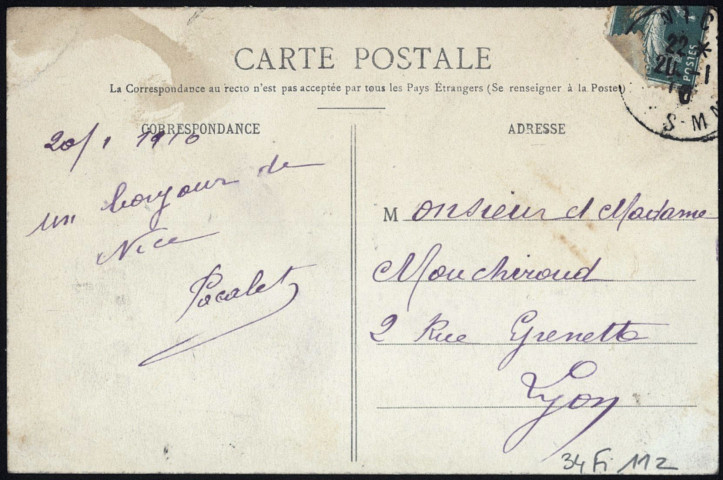 CARTE POSTALE
La Correspondance au recto n'est pas acceptée par tous les Pays Étrangers (Se renseigner à la Poste)
CORRESPONDANCE
20/1 1910
un bonjour de
Nice
Pacalet
ADRESSE
Monsieur et Madame
Mouchiroud
2 Rue Grenette
Lyon
34 Fi 112
NICE
22 *
20 -1
10
POSTES